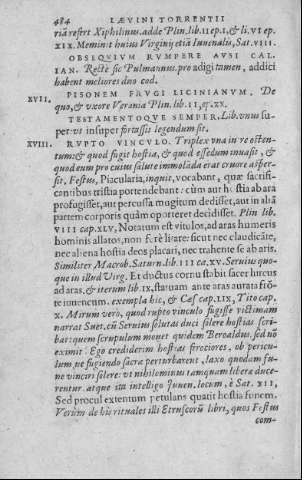 484 LAEVINI TORRENTII
riā refert Xiphilinus. adde Plin. lib. II ep. I, & li. VI ep.
XIX. Meminit huius Virginij etiā Iuuenalis, Sat. VIII.
OBSEQVIVM RVMPERE AVSI CAL-
IAN. Recte sic Pulmannus, pro adigi tamen, addici
habent meliores duo cod.
XVII. PISONEM FRVGI LICINIANVM. De
quo, & vxore Verania Plin. lib. II, ep. XX.
TESTAMENTOQVE SEMPER. Lib. vnus su-
per vs insuper fortassis legendum sit.
XVIII. RVPTO VINCVLO. Triplex vna in re osten-
tum: & quod fugit hostia, & quod essedum inuasit, &
quod eum pro cuius salute immolada erat cruore asper-
sit, Festus, Piacularia, inquit, vocabant, quæ sacrifi-
cantibus tristia portendebant: cùm aut hostia ab ara
profugisset, aut percussa mugitum dedisset, aut in aliā
partem corporis quàm oporteret decidisset. Plin. lib.
VIII cap. XLV, Notatum est vitulos, ad aras humeris
hominis allatos, non ferè litare: sicut nec claudicāte,
nec aliena hostia deos placari, nec trahente se ab aris.
Similiter Macrob. Saturn. lib. III ca. XV. Seruius quo-
que in illud Virg. Et ductus cornu stabit sacer hircus
ad aras, & iterum lib. IX, statuam ante aras aurata frō-
te iuuencum. exempla hic, & Caes. cap. LIX, Tito cap.
X. Mirum verò, quod rupto vinculo fugisse victimam
narrat Suet. cū Seruius solutas duci solere hostias scri-
bat: quem scrupulum mouet quidem Beroaldus, sed nō
eximit. Ego crediderim hostias ferociores, ob pericu-
lum ne fugiendo sacra perturbarent, laxo quodam fu-
ne vinciri solere: vt nihilominus tamquam libere duce-
rentur. atque ita intelligo Juuen. locum, è Sat. XII,
Sed procul extentum petulans quatit hostia funem.
Verùm de his rituales illi Etruscorū libri, quos Festus
com-